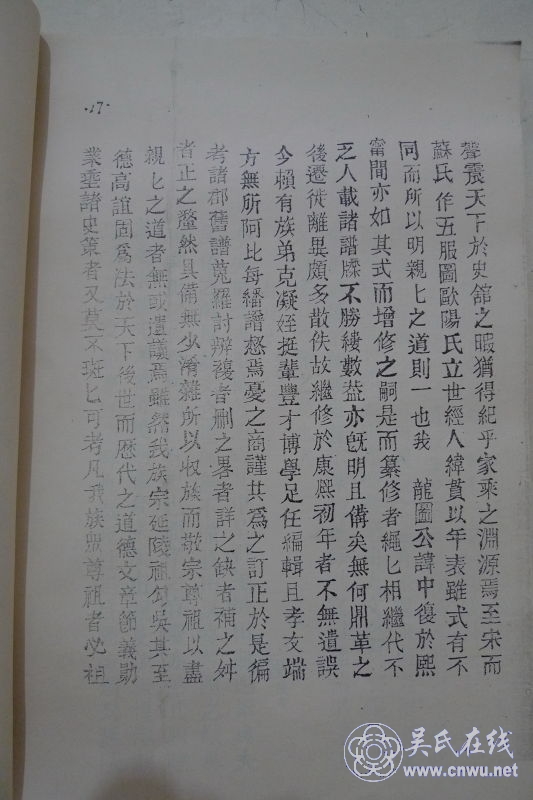 ·17·
聲震天下於史舘之暇猶得紀乎家乘之淵源焉至宋而
蘇氏作五服圖歐陽氏立世經人緯貫以年表雖式有不
同而所以明親匕之道則一也我 龍圖公諱中復於熙
甯間亦如其式而增修之嗣是而纂修者繩匕相繼代不
乏人載諸譜牒不勝縷數葢亦旣明且備矣無何鼎革之
後遷徙離異頗多散佚故繼修於康熙初年者不無遺誤
今賴有族弟克凝姪挺輩豐才博學足任編輯且孝友端
方無所阿比每繙譜惄焉憂之商謹其為之訂正於是徧
考諸郡舊譜蒐羅討辨複者删之畧者詳之缺者補之舛
者正之釐然具備無少淆雜所以収族而敬宗尊祖以盡
親匕之道者無或遺議焉雖然我族宗延陵祖勾吳其至
德高誼固爲法於天下後世而歴代之道德文章節義勛
業垂諸史策者又莫不斑匕可考凡我族衆尊祖者必祖
吴氏在线
www.cnwu.net